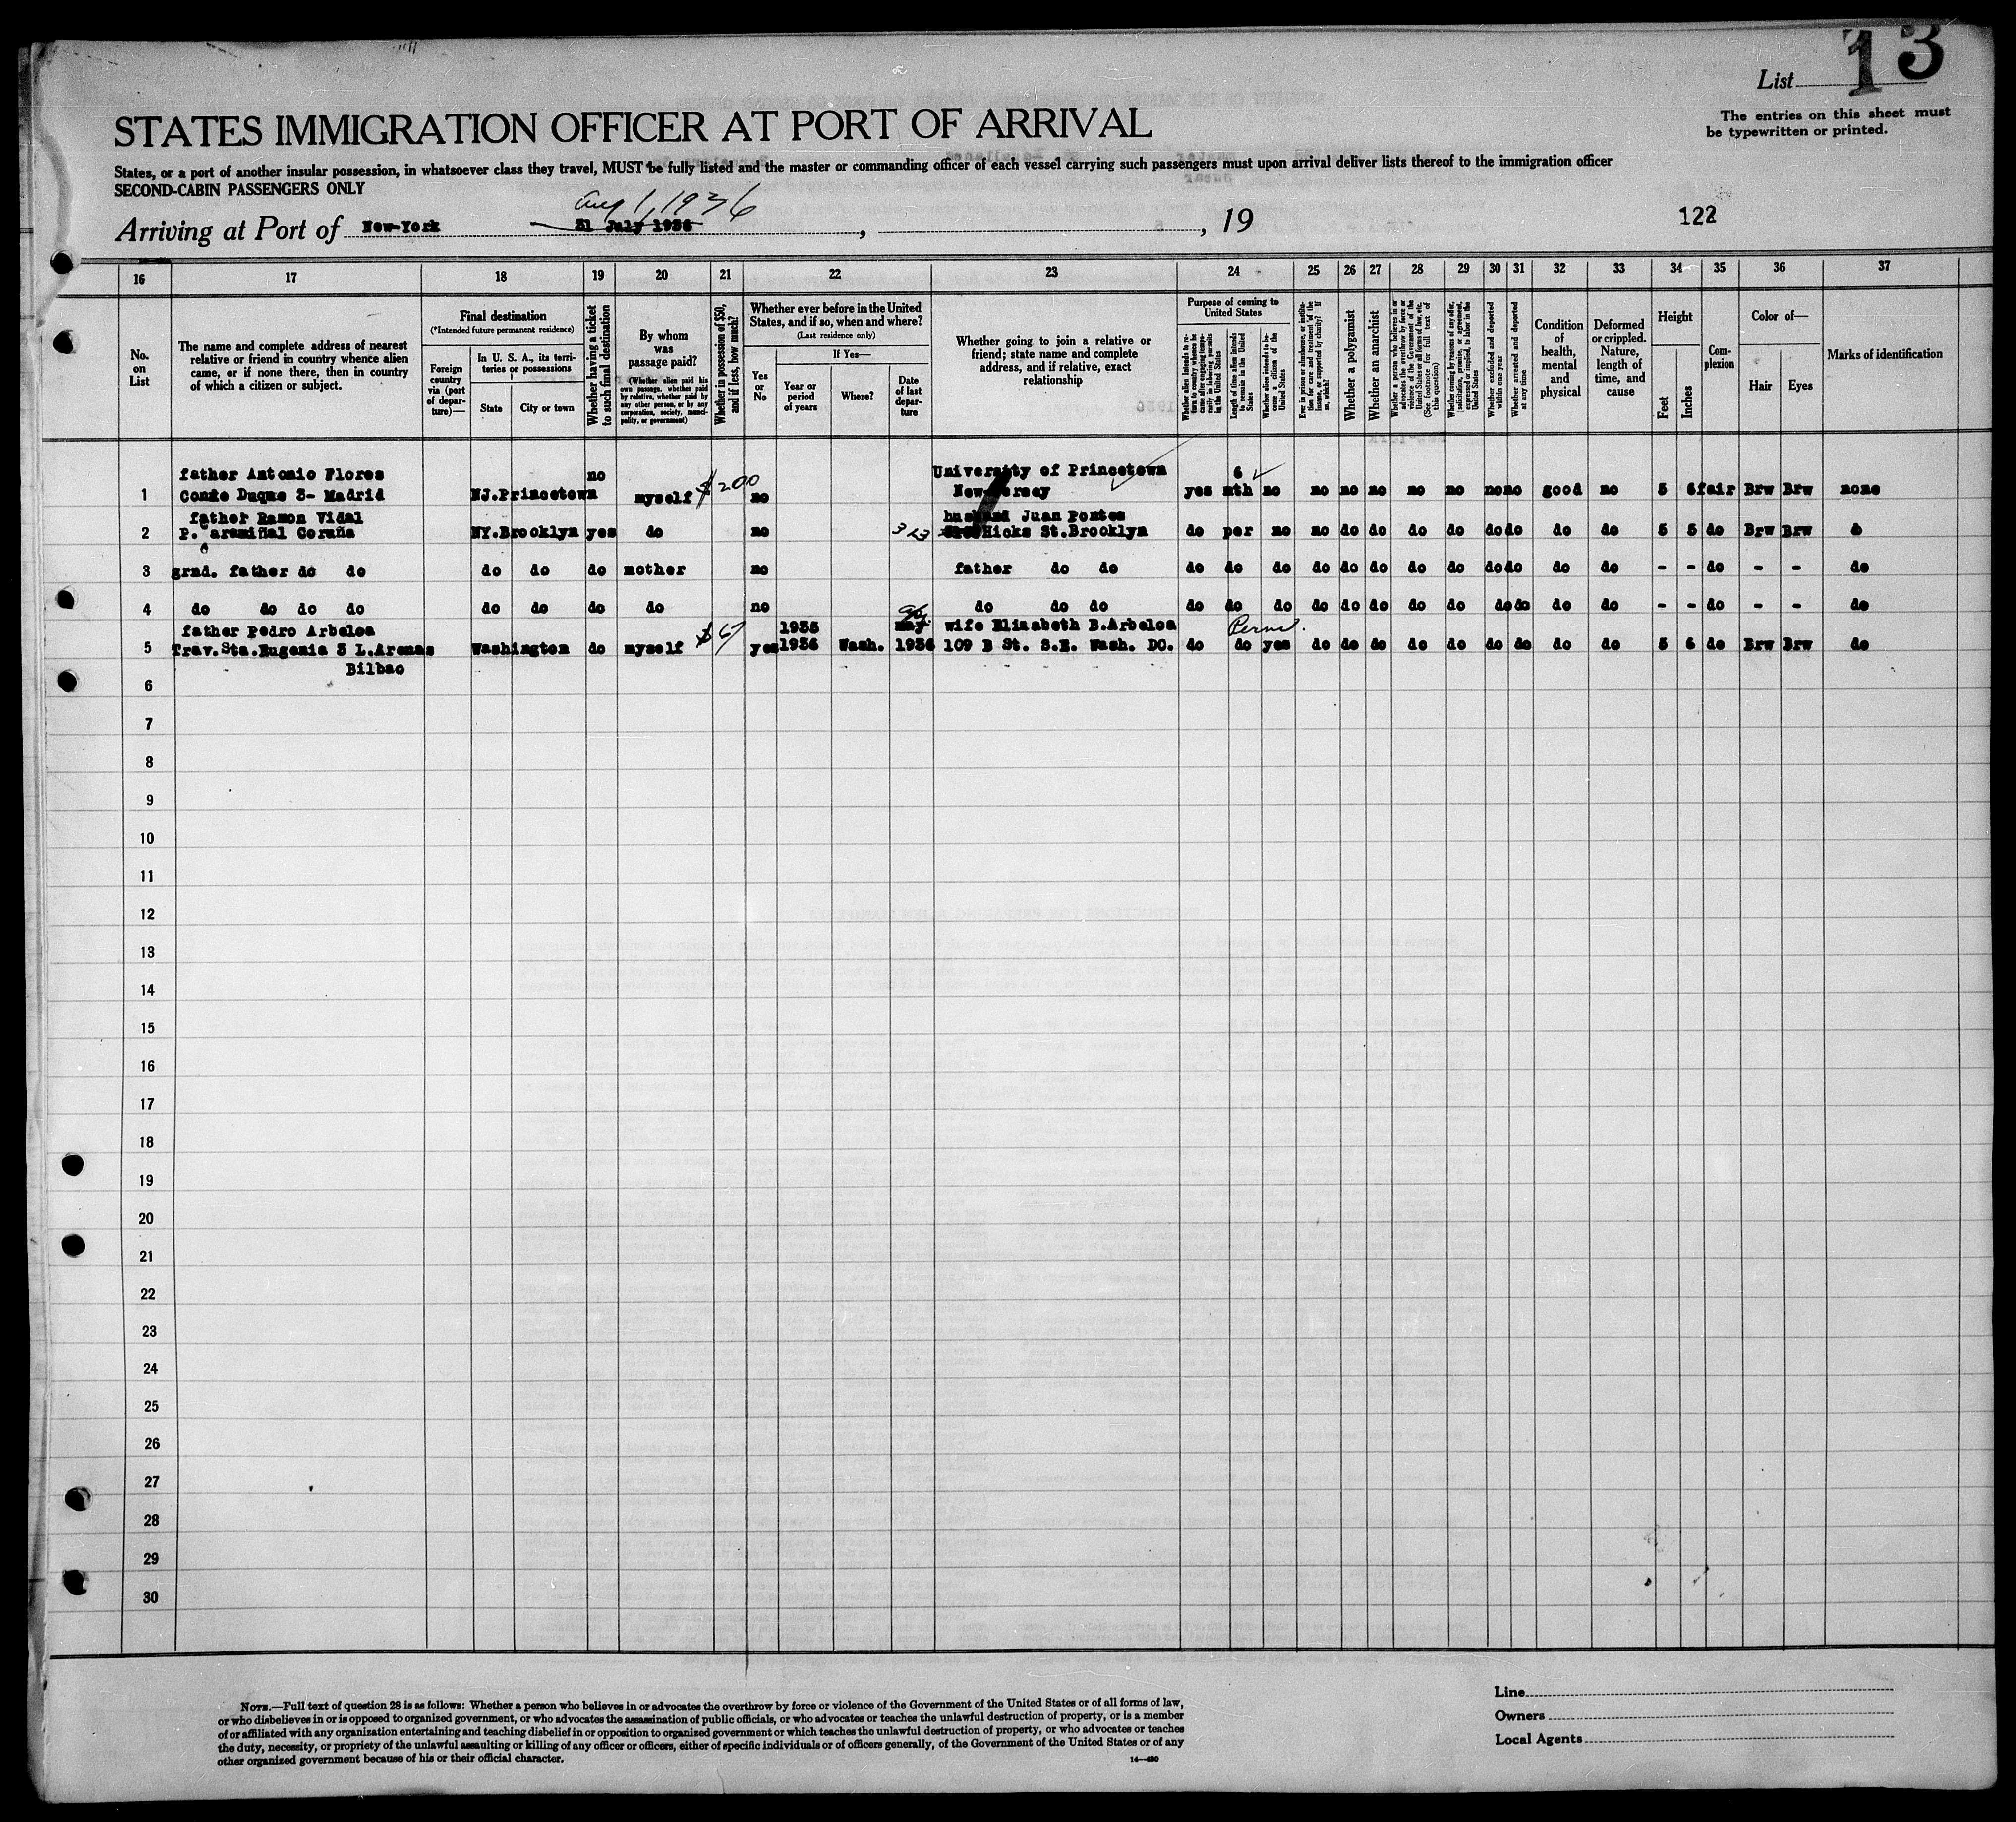 List 13
The entries on this sheet must
be typewritten or printed.
STATES IMMIGRATION OFFICER AT PORT OF ARRIVAL
States, or a port of another insular possession, in whatsoever class they travel, MUST be fully listed and the master or commanding officer of each vessel carrying such passengers must upon arrival deliver lists thereof to the immigration officer
SECOND-CABIN PASSENGERS ONLY
Aug 1, 1936
Arriving at Port of New-York 31 July 1936, , 19
122
16 17 18 19 20 21 22 23 24 25 26 27 28 29 30 31 32 33 34 35 36 37
No. on List
The name and complete address of nearest
relative or friend in country whence alien
came, or if none there, then in country
of which a citizen or subject.
Final destination
(*Intended future permanent residence)
Foreign country via (port of departure)—
In U. S. A., its territories or possessions
State
City or town
Whether having a ticket to such final destination
By whom was passage paid?
(Whether alien paid his own passage, whether paid by relative, whether paid by any other person, or by any corporation, society, municipality, or government)
Whether in possession of $50, and if less, how much?
Whether ever before in the United
States, and if so, when and where?
(Last residence only)
Yes or No
If Yes—
Year or period of years
Where?
Date of last departure
Whether going to join a relative or
friend; state name and complete
address, and if relative, exact
relationship
Purpose of coming to
United States
Whether alien intends to return to country whence he came after engaging temporarily in laboring pursuits in the United States
Length of time alien intends to remain in the United States
Whether alien intends to become a citizen of the United States
Ever in prison or almshouse, or institution for care and treatment of the insane, or supported by charity? If so, which?
Whether a polygamist
Whether an anarchist
Whether a person who believes in or advocates the overthrow by force or violence of the Government of the United States or all forms of law, etc. (See footnote for full text of this question)
Whether coming by reasons of any offer, solicitation, promise, or agreement, expressed or implied, to labor in the United States
Whether excluded and deported within one year
Whether arrested and deported at any time
Condition of health, mental and physical
Deformed or crippled. Nature, length of time, and cause
Height
Feet
Inches
Complexion
Color of—
Hair
Eyes
Marks of identification
father Antonio Flores no University of Princetown 6
1 Conde Duque 3- Madrid NJ.Princetown myself $200 no New-Jersey yes mth no no no no no no no no good no 5 6 fair Brw Brw none
father Ramon Vidal husband Juan Pontes
2 P. aramiñal Coruña NY.Brooklyn yes do no 323 Hicks St.Brooklyn do per no no do do do do do do do do 5 5 do Brw Brw
3 grad. father do do do do do mother no father do do do do do do do do do do do do do do - - do - - do
4 do do do do do do do do no do do do do do do do do do do do do do do do - - do - - do
father Pedro Arbeloa 1935 May wife Elizabeth B.Arbeloa Perm.
5 Trav.Sta.Eugenia 3 L.Arenas Washington do myself yes 1936 Wash. 1936 109 B St. S.E. Wash. DC. do do yes do do do do do do do do do 5 6 do Brw Brw do
Bilbao
6
7
8
9
10
11
12
13
14
15
16
17
18
19
20
21
22
23
24
25
26
27
28
29
30
NOTE.—Full text of question 28 is as follows: Whether a person who believes in or advocates the overthrow by force or violence of the Government of the United States or of all forms of law,
or who disbelieves in or is opposed to organized government, or who advocates the assassination of public officials, or who advocates or teaches the unlawful destruction of property, or is a member
of or affiliated with any organization entertaining and teaching disbelief in or opposition to organized government or which teaches the unlawful destruction of property, or who advocates or teaches
the duty, necessity, or propriety of the unlawful assaulting or killing of any officer or officers, either of specific individuals or of officers generally, of the Government of the United States or of any
other organized government because of his or their official character.
14—430
Line
Owners
Local Agents